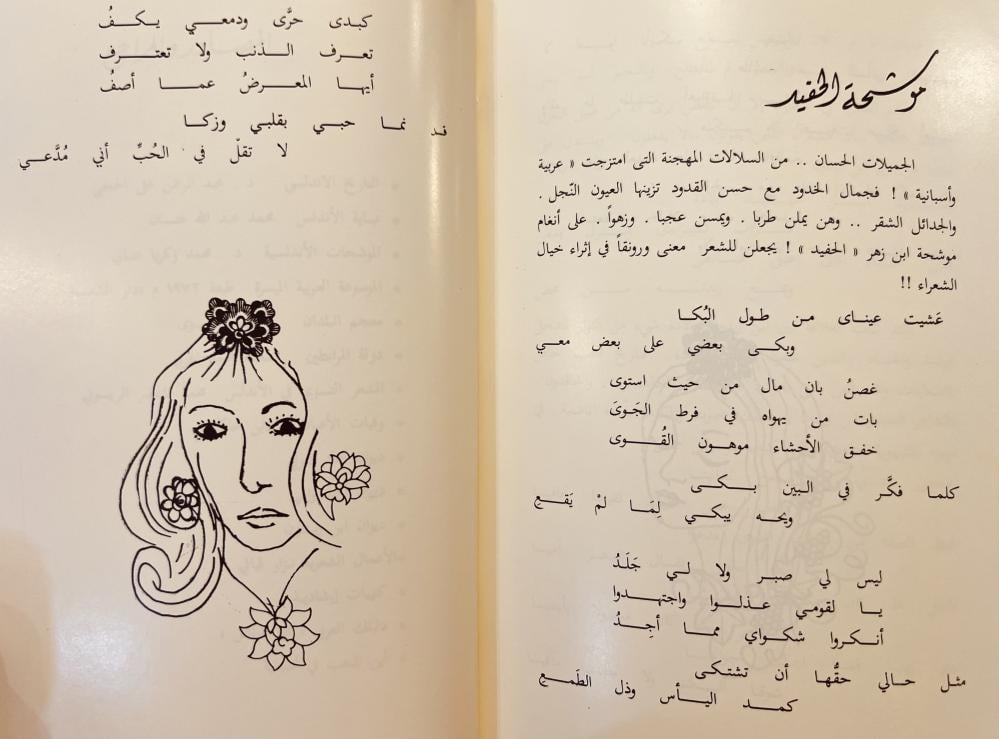 موشحة الحفيد
الجميلات الحسان .. من السلالات المهجنة التى امتزجت « عربية
وأسبانية » ! فجمال الخدود مع حسن القدود تزينها العيون النّجل .
والجدائل الشقر .. وهن يملن طربا . ويمسن عجبا . وزهواً . على أنغام
موشحة ابن زهر « الحفيد » ! يجعلن للشعر معنى ورونقاً في إثراء خيال
الشعراء !!
عَشيت عيناى من طول البُكا
وبكى بعضي على بعض معي
غصنُ بان مال من حيث استوى
بات من يهواه في فرط الجَوىَ
خفق الأحشاء موهون القُوى
كلما فكَّر في البين بكى
ويحه يبكي لِمَا لمْ يَقع
ليس لي صبر ولا لي جَلَدُ
يا لقومي عذلوا واجتهدوا
أنكروا شكواي مما أجِدُ
مثل حالي حقُّها أن تشتكى
كمد اليأس وذل الطَمع
كبدى حرَّى ودمعي يكفُ
تعرف الذنب ولا تعترف
أيها المعرضُ عما أصفُ
قد نما حبي بقلبي وزكا
لا تقلّ في الحُبِّ أني مُدَّعي